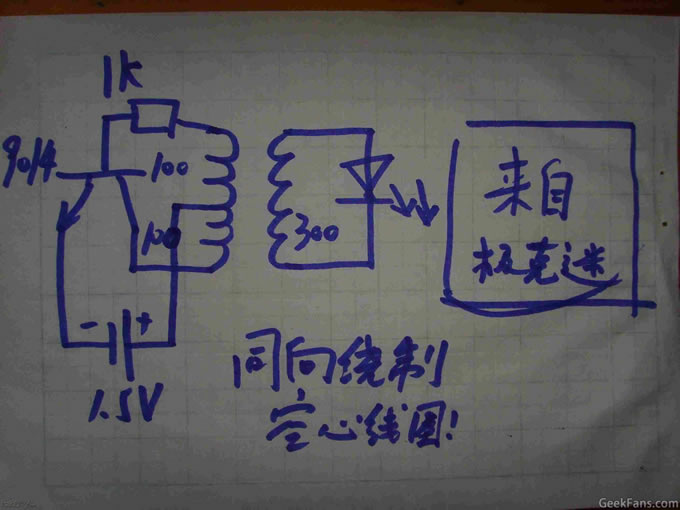 1K
9014
100
100
300
- +
1.5V
来自
极克迷
同向绕制
空心线圈!
GeekFans.com